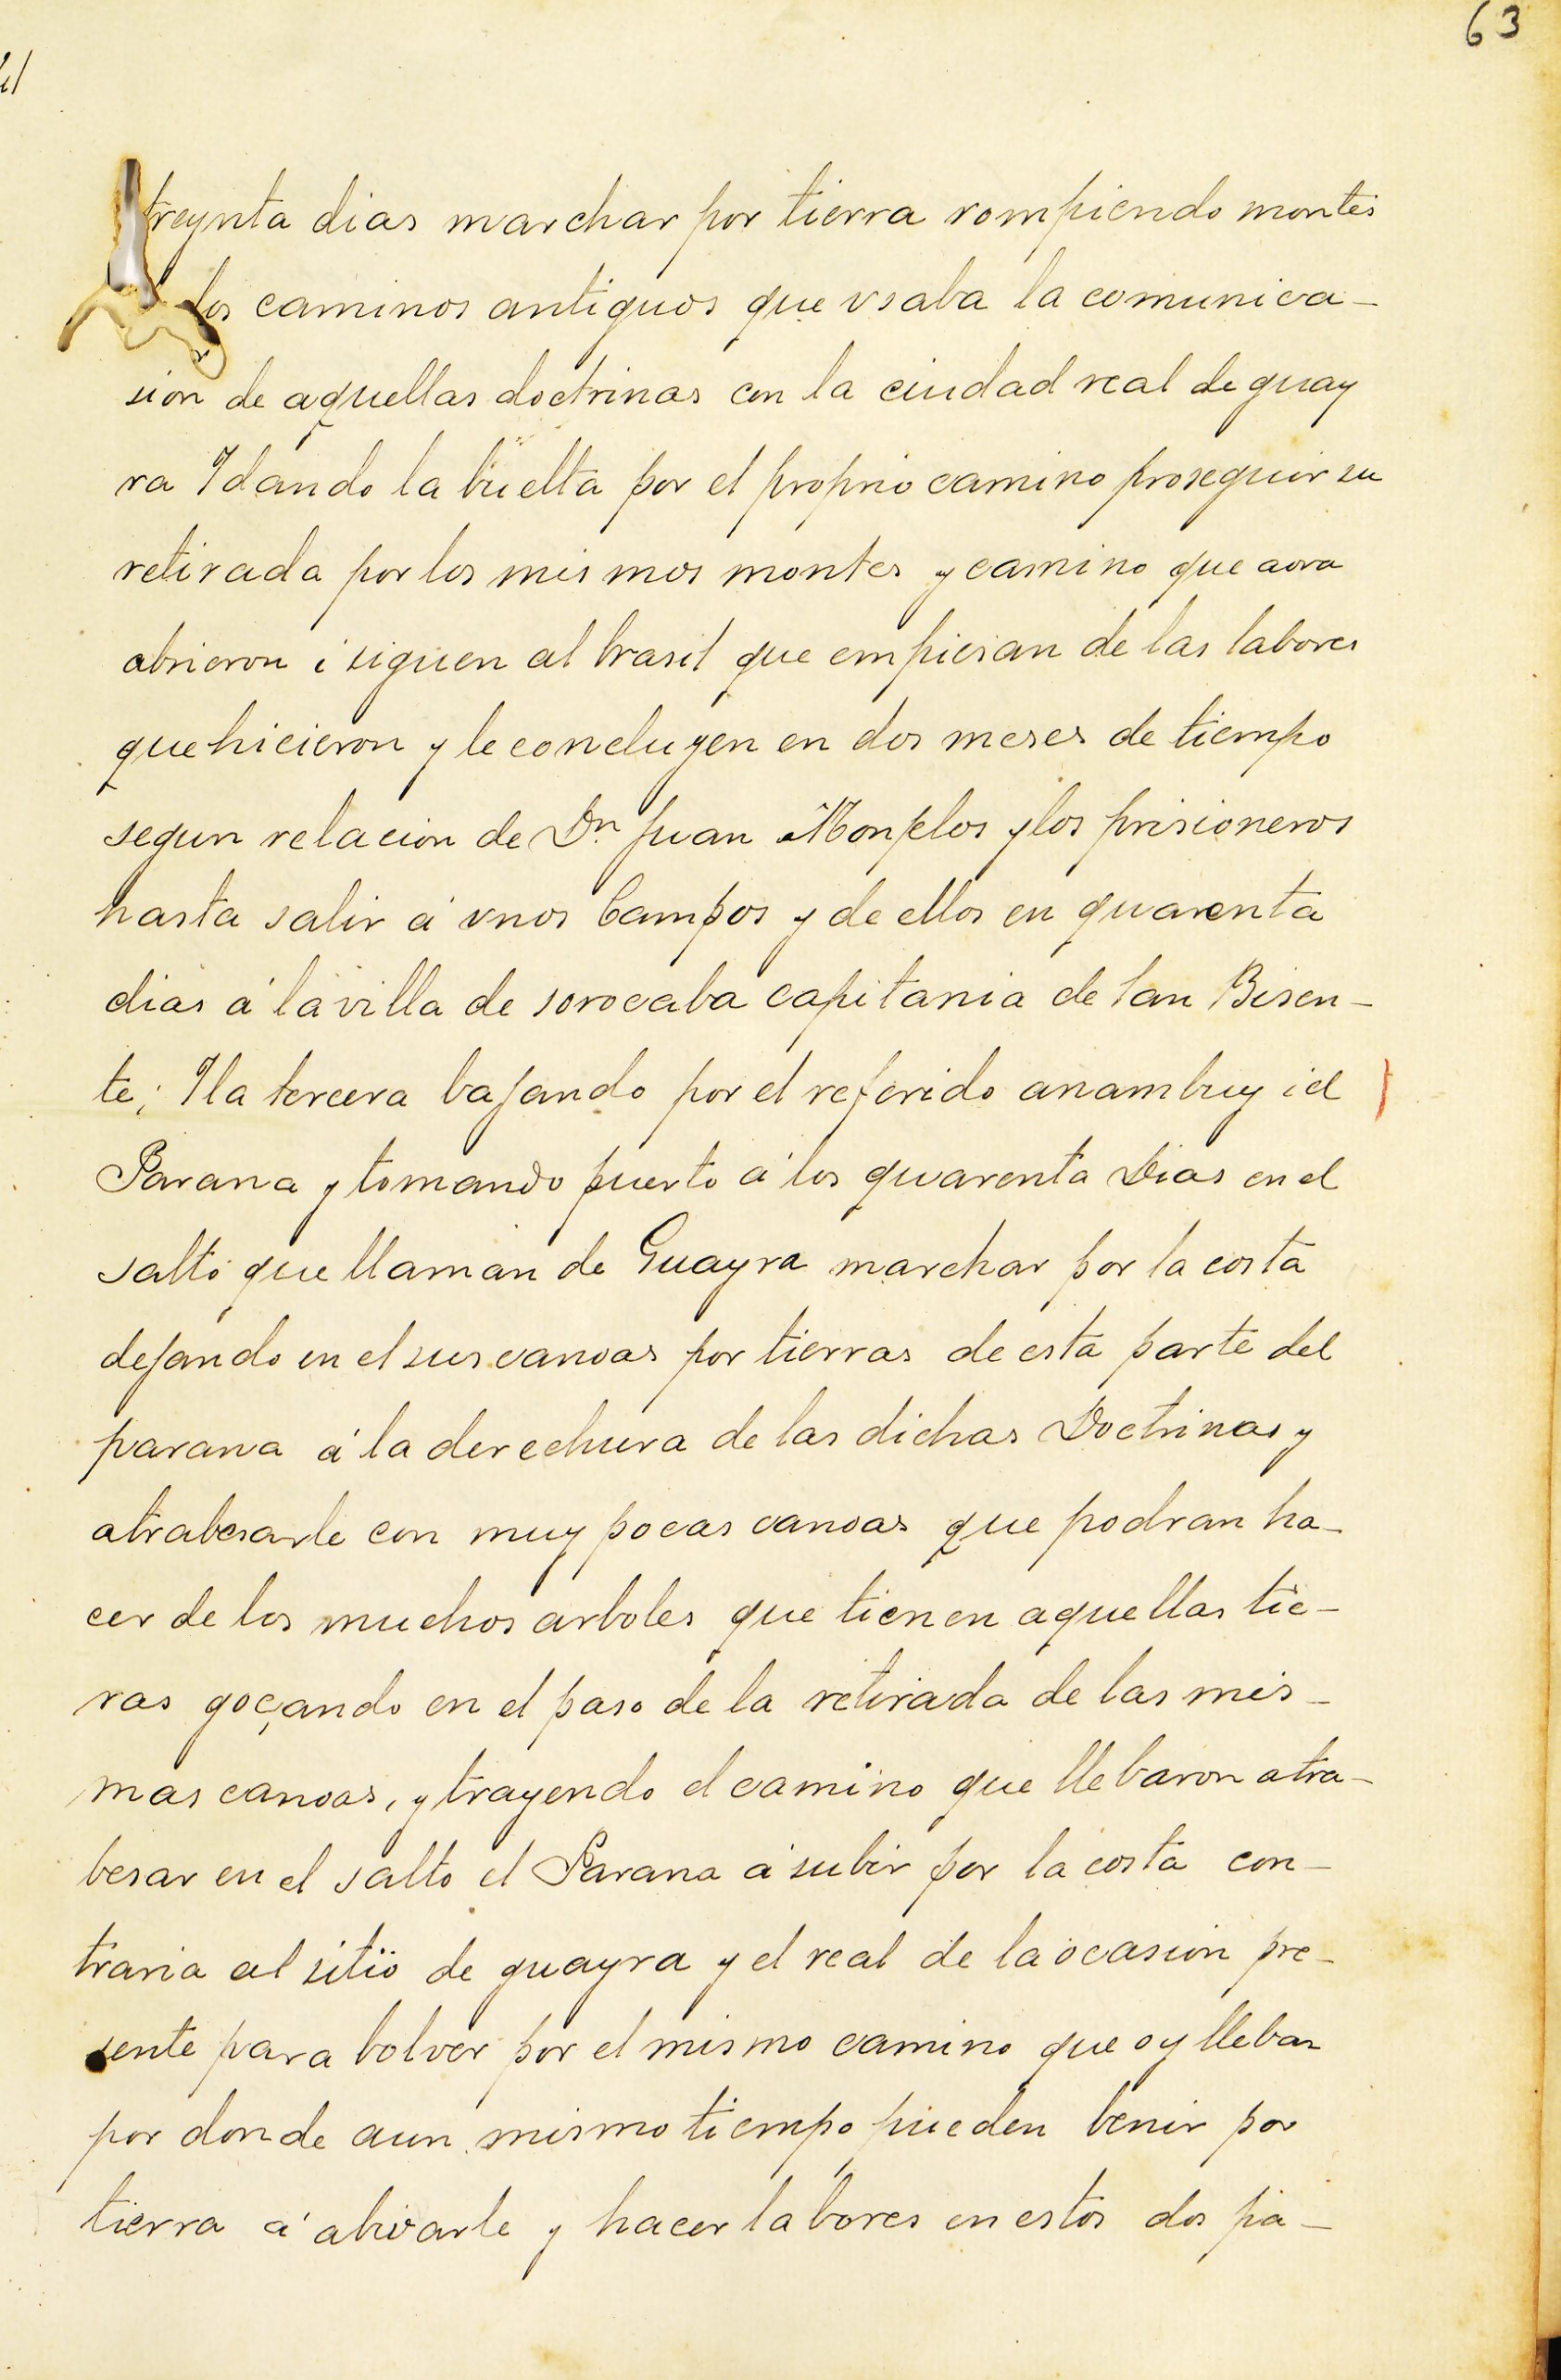 63
treynta dias marchar por tierra rompiendo montes
los caminos antiguos que vsaba la comunica-
sion de aquellas doctrinas con la ciudad real de guay
ra Y dando la buelta por el proprio camino proseguir su
retirada por los mismos montes y camino que aora
abrieron i siguen al brasil que empiesan de las labores
que hicieron y le concluyen en dos meses de tiempo
segun relacion de Dn. Juan Monjelos y los prisioneros
hasta salir á vnos Campos y de ellos en quarenta
dias á la villa de sorocaba capitania de San Bisen-
te; Y la tercera bajando por el referido anambuy i el
Parana y tomando puerto á los quarenta Dias en el
salto que llaman de Guayra marchar por la costa
dejando en el sus canoas por tierras de esta parte del
parana á la derechura de las dichas Doctrinas y
atrabesarle con muy pocas canoas que podran ha-
cer de los muchos arboles que tienen aquellas tie-
ras goçando en el paso de la retirada de las mis-
mas canoas, y trayendo el camino que llebaron atra-
besar en el salto el Parana á subir por la costa con-
traria al sitio de guayra y el real de la ocasion pre-
sente para bolver por el mismo camino que oy lleban
por donde aun mismo tiempo pueden benir por
tierra á abivarle y hacer labores en estos dos pa-